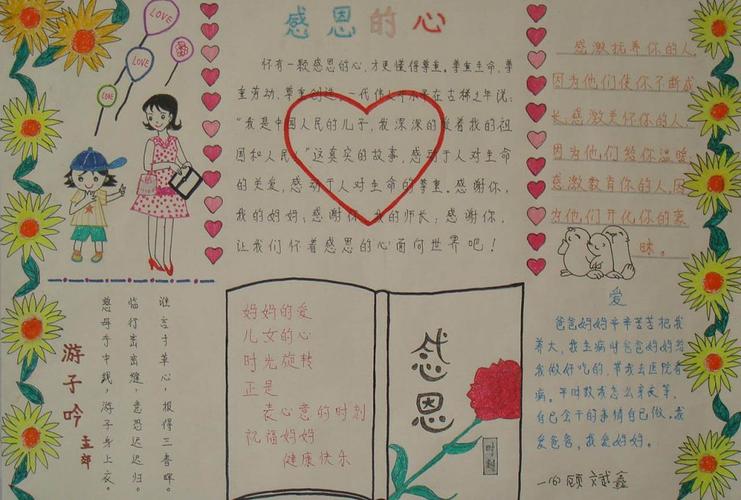 感恩的心
LOVE
LOVE
LOVE
怀有一颗感恩的心,才更懂得尊重。尊重生命、尊
重劳动、尊重创造。一代伟人在古稀之年说:
“我是中国人民的儿子,我深深的爱着我的祖
国和人民。”这真实的故事,感动于人对生命
的关爱,感动于人对生命的尊重。感谢你,
我的妈妈;感谢你,我的师长;感谢你,
让我们怀着感恩的心面向世界吧!
感激抚养你的人,
因为他们使你不断成
长,感激关怀你的人,
因为他们给你温暖
感激教育你的人,因
为他们开化你的蒙
昧。
游子吟
慈母手中线,游子身上衣。
临行密密缝,意恐迟迟归。
谁言寸草心,报得三春晖。
妈妈的爱
儿女的心
时光旋转
正是
表心意的时刻
祝福妈妈
健康快乐
感恩
时刻
爱
爸爸妈妈辛辛苦苦把我
养大,我生病时爸爸妈妈给
我做好吃的,带我去医院看
病。平时教我怎么穿衣等,
自己会干的事情自己做。我
爱爸爸,我爱妈妈。
顾斌鑫